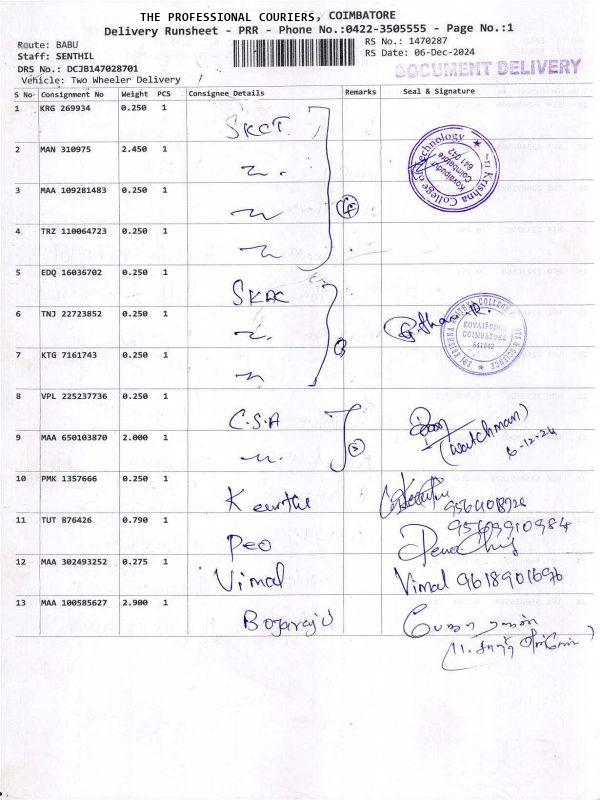 THE PROFESSIONAL COURIERS, COIMBATORE
Delivery Runsheet - PRR - Phone No.:0422-3505555 - Page No.:1
Route: BABU
Staff: SENTHIL
DRS No.: DCJB147028701
Vehicle: Two Wheeler Delivery
RS No.: 1470287
RS Date: 06-Dec-2024
DOCUMENT DELIVERY
S No Consignment No Weight PCS Consignee Details Remarks Seal & Signature
1 KRG 269934 0.250 1 SKCT
2 MAN 310975 2.450 1
3 MAA 109281483 0.250 1
4 TRZ 110064723 0.250 1
Sri Krishna College of Technology
Kovaipudur
Coimbatore
641 042
5 EDQ 16036702 0.250 1 SKAC
6 TNJ 22723852 0.250 1
7 KTG 7161743 0.250 1
SRI KRISHNA ADITHYA COLLEGE OF ARTS & SCIENCE
KOVAIPUDUR
COIMBATORE
641042
8 VPL 225237736 0.250 1 C.S.A
9 MAA 650103870 2.000 1 (watchman)
6-12-24
10 PMK 1357666 0.250 1 Keerthi
11 TUT 876426 0.790 1 Peo
12 MAA 302493252 0.275 1 Vimal Vimal 9618901696
13 MAA 100585627 2.900 1 Bojaraju